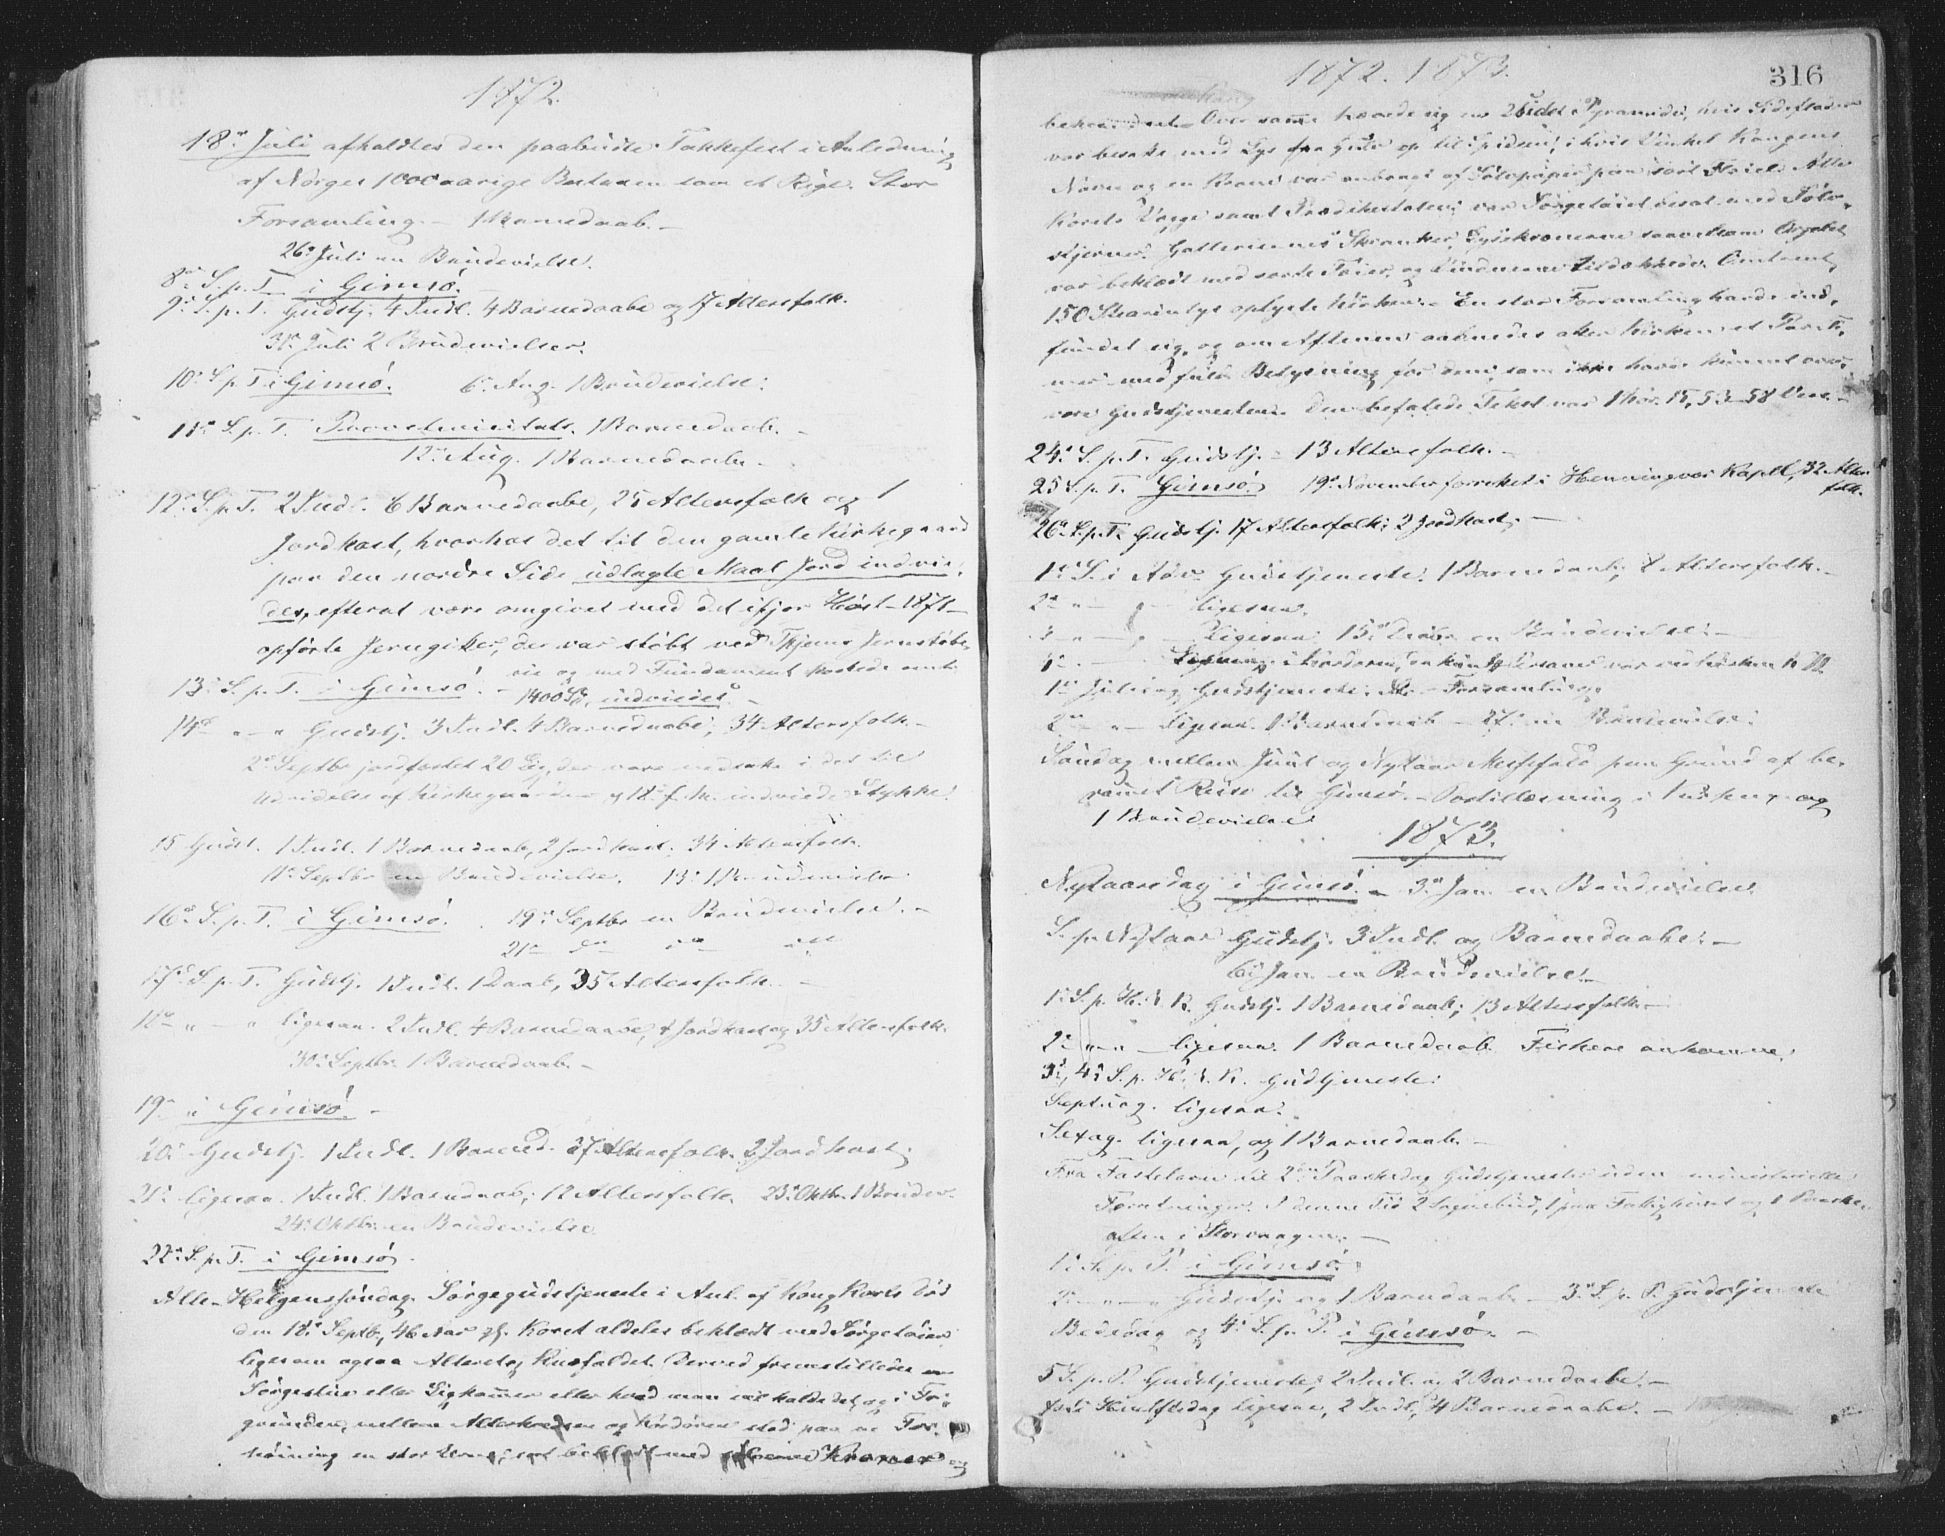 1872.
18de Juli afholdtes den paabudte Takkefest i Anledning
af Norges 1000aarige Bestaaen som et Rige. Stor
Forsamling. – 1 Barnedaab. –
26de Juli en Brudevielse.
8de S. p. T. i Gimsø.
9de S. p. T. Gudstj. 4 Indl. 4 Barnedaabe og 17 Altersfolk.
31te Juli 2 Brudevielser.
10de S. p. T. i Gimsø. 6te Aug. 1 Brudevielse.
11te S. p. T. Provstevisitats. 1 Barnedaab. –
12te Aug. 1 Barnedaab. –
12te S. p. T. 2 Indl. 6 Barnedaabe, 25 Altersfolk og 1
Jordkast, hvorhos det til den gamle Kirkegaard
paa den nordre Side udlagte Maal Jord indvie-
des, efterat være omgivet med det ifjor Høst – 1871 –
opførte Jerngitter, der var støbt ved Jernstøbe-
rie og med Fundament kostede omtr.
13de S. p. T. i Gimsø. – 1400 Sp, indviedes. –
14de " – " Gudstj. 3 Indl. 4 Barnedaabe, 34 Altersfolk. –
2de Septbr jordfæstet 20 Lig, der vare nedsatte i det til
Udvidelse af Kirkegaarden indviede Stykke.
15 Gudst. 1 Indl. 1 Barnedaab, 2 Jordkast. 34 Altersfolk.
11te Septbr en Brudevielse. 13de 1 Brudevielse.
16de S. p. T. i Gimsø. 19de Septbr en Brudevielse. –
21de do
17de S. p. T. Gudstj. 1 Indl. 1 Daab, 35 Altersfolk. –
18de " – " ligesaa. 2 Indl. 4 Barnedaabe, 4 Jordkast og 35 Altersfolk.
30te Septbr. 1 Barnedaab. –
19de " i Gimsø. –
20de Gudstj. 1 Indl. 1 Barned. 27 Altersfolk. 2 Jordkast.
21de ligesaa. 1 Indl. 1 Barnedaab, 12 Altersfolk. 23de Oktbr. 1 Brudev.
24de Oktbr. en Brudevielse
22de S. p. T. i Gimsø.
Alle-Helgenssøndag. Sørgegudstjeneste i Anl. af Kong Karls Død
den 18de Septbr, 46 Aar gl. Koret aldeles beklædt med Sørgetøier
ligesom ogsaa Alteret og Knæfaldet. Derved fremstilledes en
Sørgestue eller Ligkammer eller hvad man vil kalde det, og i For-
grunden, mellem Alterkredsen og Kordøren stod paa en For-
høining en stor Urne, sort beklædt med Kranse og
1872. 1873.
316
Over samme hævede sig en 2sidet Pyramide, hvis Sideflader
var besatte med Lys fra Gulv op til Spidsen, i hvis Vinkel Kongens
Navn og en Krone var anbragt af Sølvpapir paa sort Alle
Korets Vægge samt Prædikestolen var Sørgetøiet besat med Sølv-
stjerner. Galleriernes Skranker, Lysekronerne saavelsom Orgelet
var beklædt med sorte Tøier, og Vinduerne tildækkede. Omtrent
150 Stearinlys oplyste Kirken. En stor Forsamling havde ind-
fundet sig, og om Aftenen aabnedes atter Kirken et Par Ti-
mer med fuld Belysning for dem, som ikke havde kunnet over-
være Gudstjenesten. Den befalede Tekst var 1 Kor. 15, 53–58 Vers. –
24de S. p. T. Gudstj. – 13 Altersfolk. –
25 S. p. T. Gimsø. 19de November forrettet i Henningsvær Kapel, 32 Alters-
folk.
26de S. p. T. Gudstj. 17 Altersfolk; 2 Jordkast. –
1ste S. i Adv. Gudstjeneste. 1 Barnedaab, 8 Altersfolk. –
2de " – " – ligesaa.
3 " – " – Ligesaa. 15de Decbr. en Brudevielse. –
4de –
1ste Juledag Gudstjeneste. – Forsamling.
2den " – Ligesaa. 1 Barnedaab – 27de en Brudevielse.
Søndag mellem Juul og Nytaar Messefald paa Grund af be-
rammet Reise til Gimsø. – Postillæsning i og
1 Brudevielse
1873.
Nytaarsdag i Gimsø. – 3de Jan. en Brudevielse.
S. p. Nytaar Gudstj. 3 Indl. og Barnedaabe. –
6te Jan. en Brudevielse. –
1ste S. p. H. 3 K. Gudstj. 1 Barnedaab; 13 Altersfolk. –
2de " – " – ligesaa. 1 Barnedaab. Fiskere ankomne.
3de, 4de S. p. H. 3 K. Gudtjeneste.
Septuag. ligesaa.
Sexag. ligesaa, og 1 Barnedaab. –
Fra Fastelavn til 2den Paaskedag Gudstjeneste uden ministerielle
Forretninger. I denne Tid 2 Sognebud, 1 paa Fattighuset og 1 Paaske-
aften i Storvaagen. –
1ste S. p. P. i Gimsø.
2de " – " – " Gudstj. og 1 Barnedaab. – 3de S. p. P. Gudstjeneste
Bededag og 4de S. p. P. i Gimsø. –
5 S. p. P. Gudstjeneste, 2 Indl. og 2 Barnedaabe. –
Kristi Himmelfartsdag ligesaa, 2 Indl, 4 Barnedaabe. –